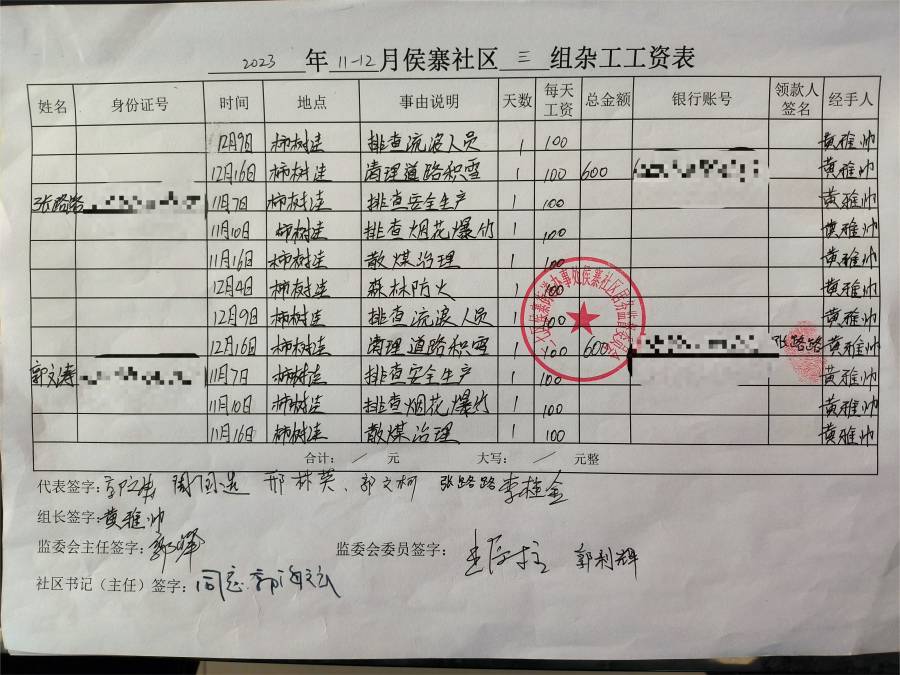 2023 年 11-12 月侯寨社区 三 组杂工工资表
姓名 身份证号 时间 地点 事由说明 天数 每天工资 总金额 银行账号 领款人签名 经手人
12月9日 柿树洼 排查流浪人员 1 100 黄雅帅
12月16日 柿树洼 清理道路积雪 1 100 600 黄雅帅
张路路 11月7日 柿树洼 排查安全生产 1 100 黄雅帅
11月10日 柿树洼 排查烟花爆竹 1 100 黄雅帅
11月16日 柿树洼 散煤治理 1 100 黄雅帅
12月4日 柿树洼 森林防火 1 100 黄雅帅
12月9日 柿树洼 排查流浪人员 1 100 黄雅帅
12月16日 柿树洼 清理道路积雪 1 100 600 张路路 黄雅帅
郭文涛 11月7日 柿树洼 排查安全生产 1 100 黄雅帅
11月10日 柿树洼 排查烟花爆竹 1 100 黄雅帅
11月16日 柿树洼 散煤治理 1 100 黄雅帅
合计: / 元 大写: / 元整
代表签字: 邢林英、郭文柯 张路路 李桂金
组长签字:黄雅帅
监委会主任签字: 监委会委员签字: 郭利辉
社区书记（主任）签字: 同意